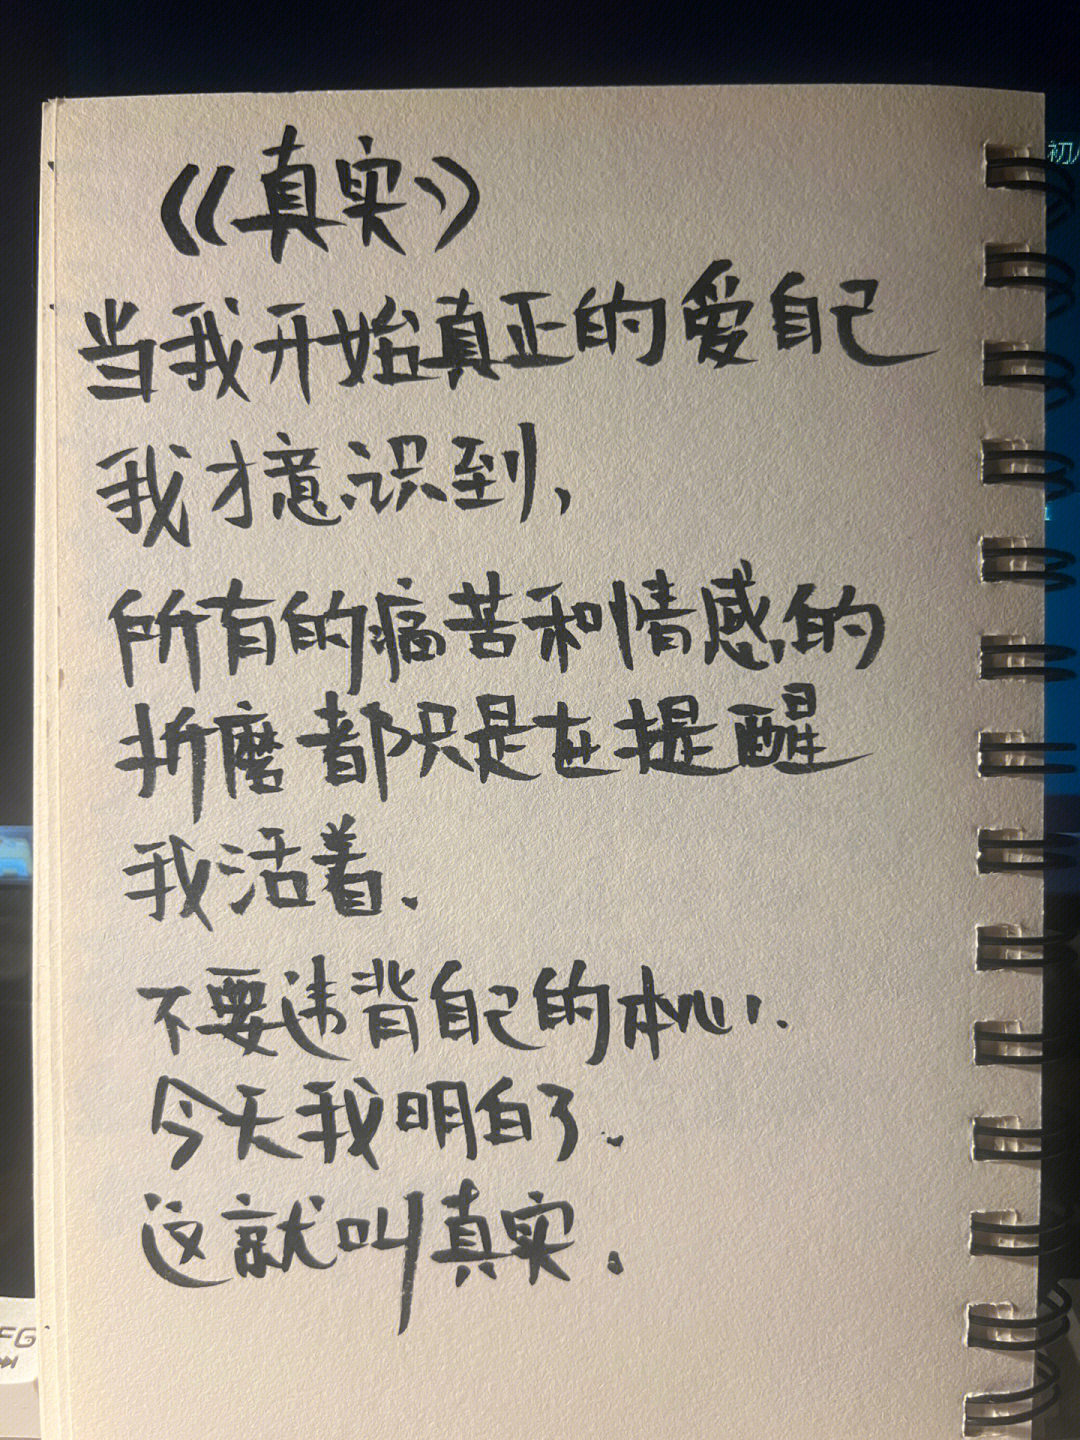 《真实》
当我开始真正的爱自己
我才意识到，
所有的痛苦和情感的
折磨都只是在提醒
我活着.
不要违背自己的本心.
今天我明白了.
这就叫真实.
初
FG